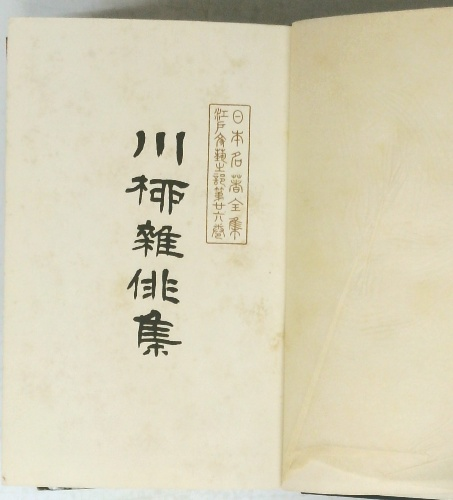 日本名著全集
江戸文藝之部第廿六巻
川柳雜俳集